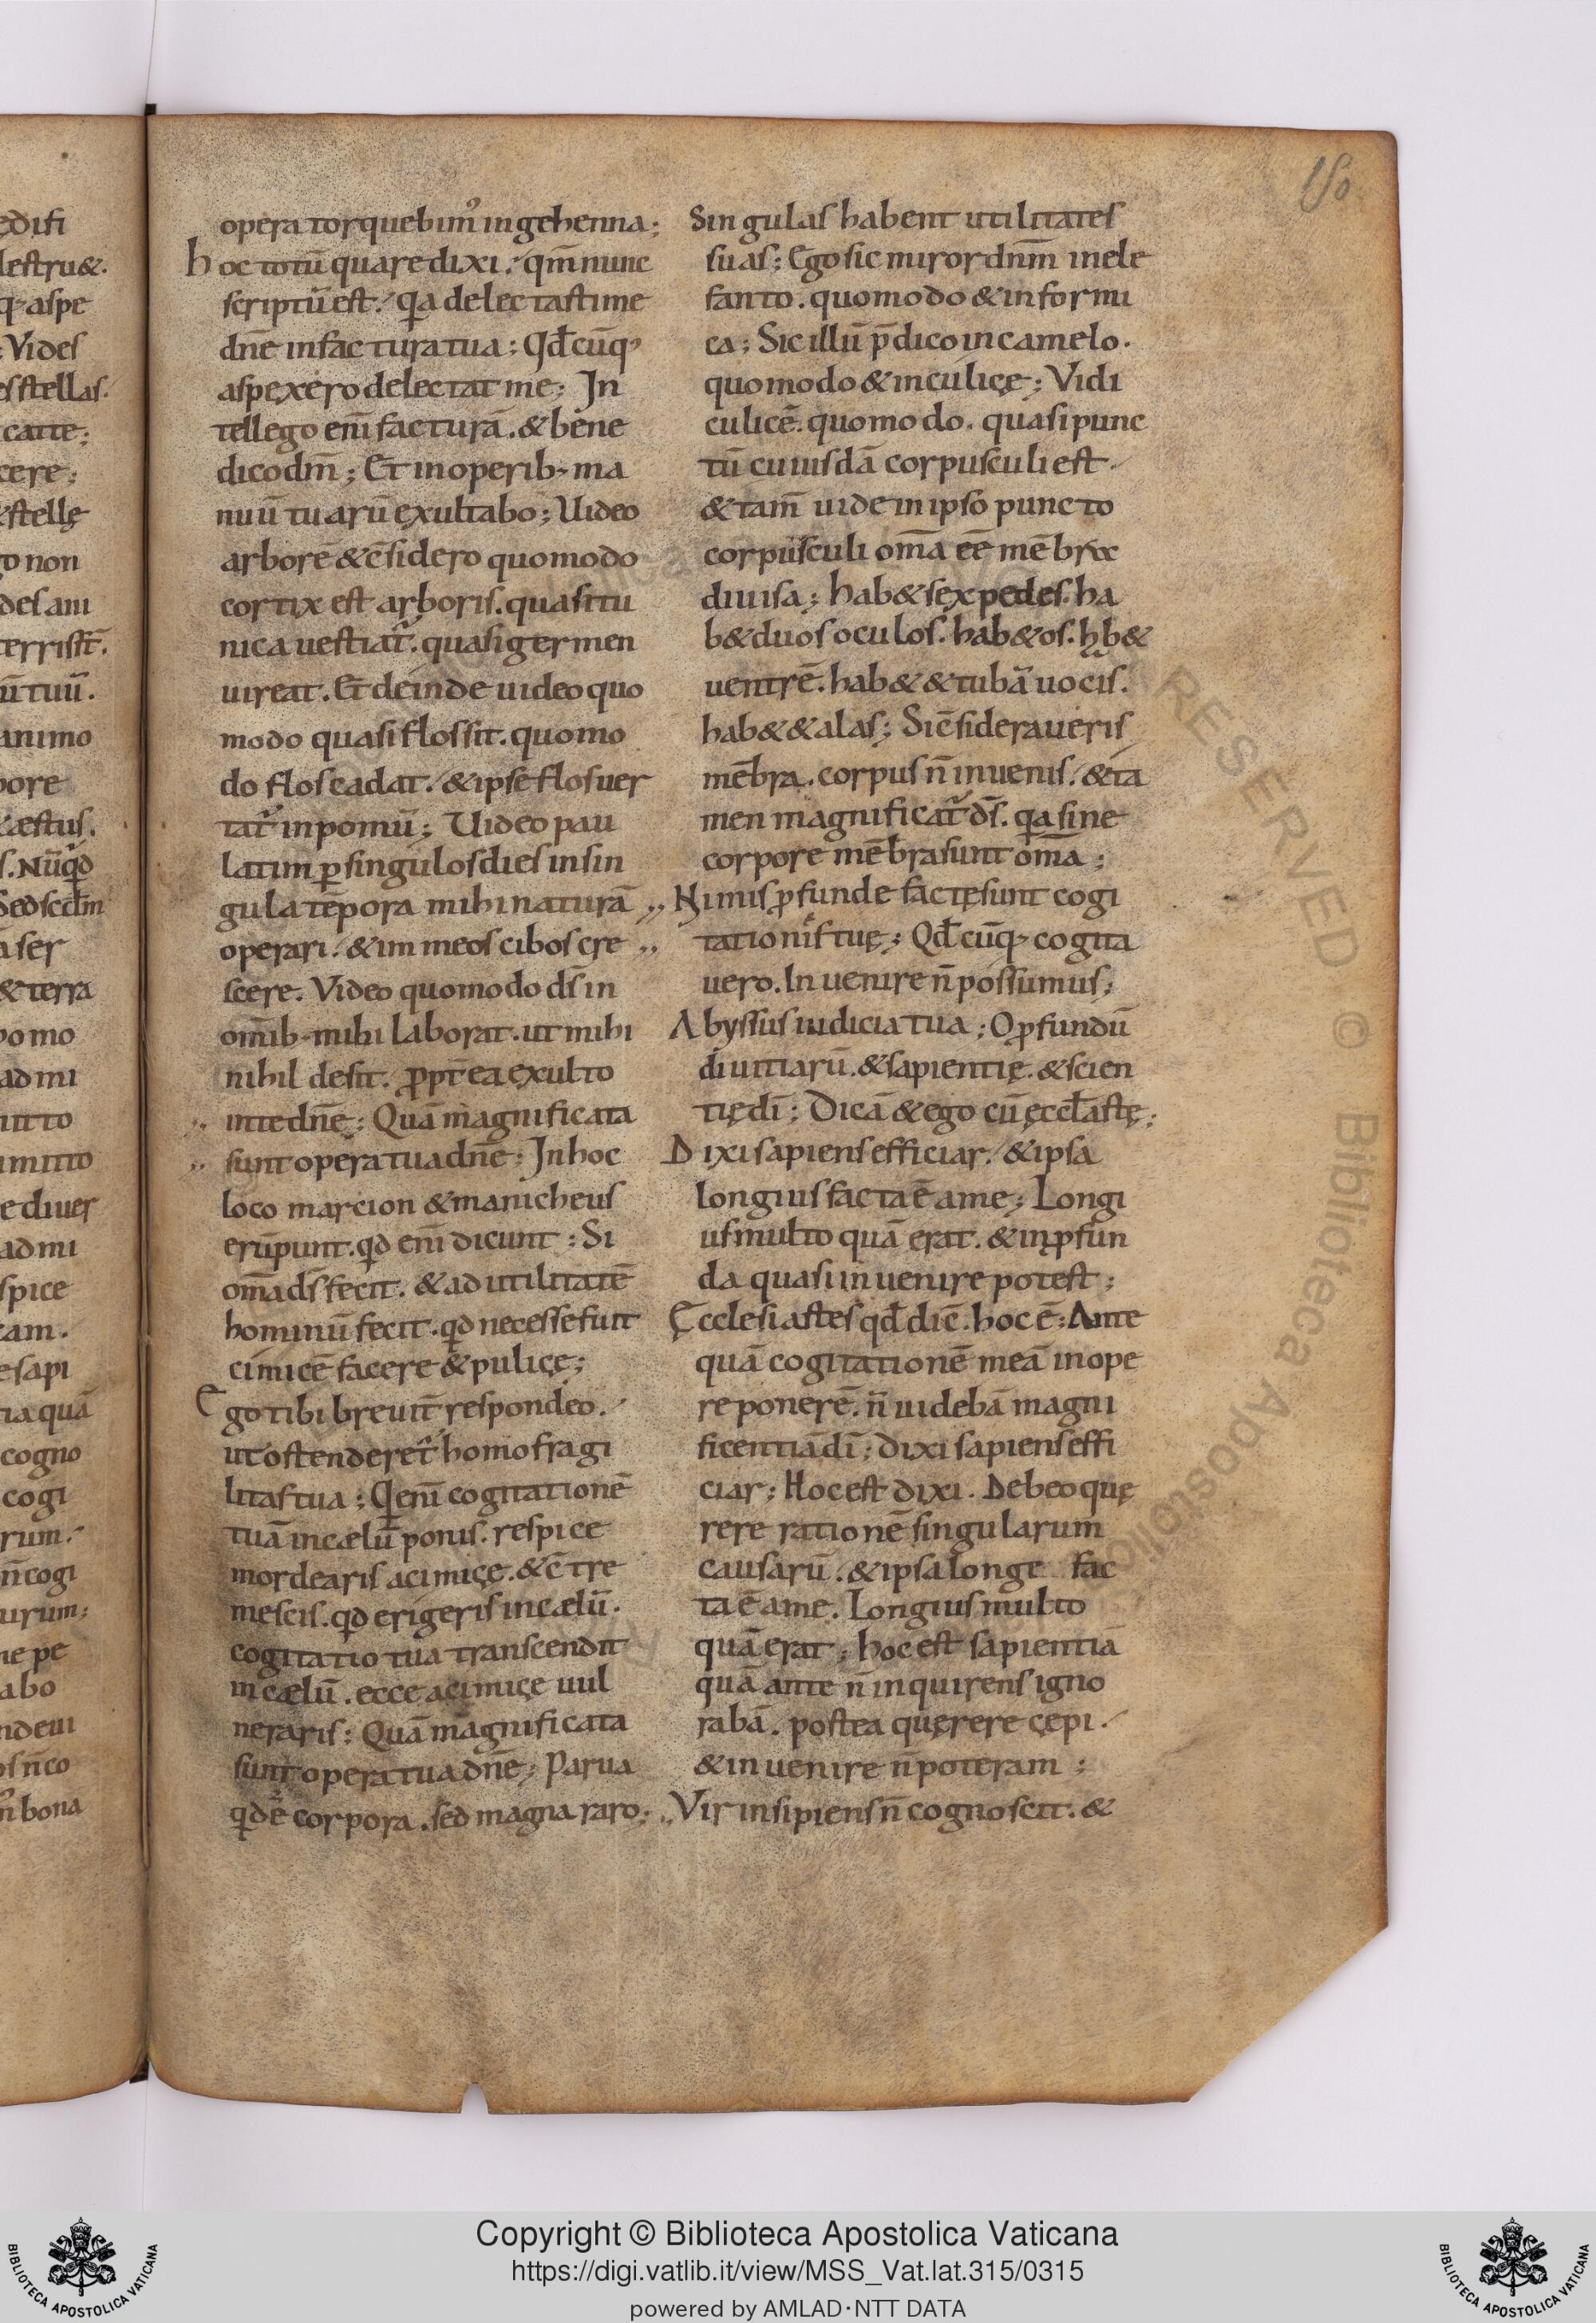 180
opera torquebimꝰ in gehenna;
hoc totū quare dixi. qm̄ nunc
scriptū est. qa delectasti me
dn̄e in factura tua; Qd̄cūq;
aspexero delectat me; In
tellego eni facturā. & bene
dico dm̄; Et in operib; ma
nuū tuarū exultabo; Uideo
arborē & c̄sidero quomodo
cortix est arboris. quasi tu
nica uestiat̄. quasi germen
uireat. Et deinde uideo quo
modo quasi flos sit. quomo
do flos cadat. & ipse flos uer
tat̄ in pomū; Uideo pau
latim ꝑ singulos dies in sin
gula tēpora mihi naturā
operari. & im meos cibos cre
scere. Video quomodo ds̄ in
omib; mihi laborat. ut mihi
nihil desit. ꝓpt̄ ea exulto
in te dn̄e; Quā magnificata
sunt opera tua dn̄e; In hoc
loco marcion & manicheus
erūpunt. qd enī dicunt; Si
om̄a ds̄ fecit. & ad utilitatē
hominū fecit. qd necesse fuit
cimicē facere & pulicę;
Ego tibi breuit̄ respondeo.
ut ostenderet̄ homo fragi
litas tua; Qi enī cogitationē
tuā in cælū ponis. respice
mordearis a cimicę. & c̄tre
mescis. qd erigeris in cælū.
cogitatio tua transcendit
in cælū. ecce a cimicę uul
neraris; Quā magnificata
sunt opera tua dn̄e; Parua
qdē corpora. sed magna raro;
Singulas habent utilitates
suas; Ego sic miror dn̄m in ele
fanto. quomodo & in formi
ca; Sic illū p̄dico in camelo.
quomodo & in culicę; Vidi
culicē. quomodo. quasi punc
tū cuiusdā corpusculi est.
& tam̄ uide in ipso puncto
corpusculi om̄a eē mēbra
diuisa; hab& sex pedes. ha
b& duos oculos. hab& os. hb&
uentrē. hab& & tubā uocis.
hab& & alas; Si c̄sideraueris
mēbra. corpus n̄ inuenis. & ta
men magnificat̄ ds̄. qa sine
corpore mēbra sunt om̄a;
Nimis ꝓfunde factę sunt cogi
tationes tuę; Qd̄cūq; cogita
uero. Inuenire n̄ possumus;
Abyssus iudicia tua; O ꝓfundū
diuitiarū. & sapientię. & scien
tię dī; Dicā & ego cū ęccl̄astę;
Dixi sapiens efficiar. & ipsa
longius facta ē a me; Longi
us multo quā erat. & in ꝓfun
da quasi inuenire potest;
Ęcclesiastes qd̄ dic̄. hoc ē; Ante
quā cogitationē meā in ope
re ponerē. n̄ uidebā magni
ficentiā dī; dixi sapiens effi
ciar; Hoc est dixi. Debeo quę
rere rationē singularum
causarū. & ipsa longe fac
ta ē a me. Longius multo
quā erat; hoc est sapientiā
quā ante n̄ inquirens igno
rabā. postea quęrere cępi.
& inuenire n̄ poteram;
Vir insipiens n̄ cognoscit. &
Copyright © Biblioteca Apostolica Vaticana
https://digi.vatlib.it/view/MSS_Vat.lat.315/0315
powered by AMLAD·NTT DATA